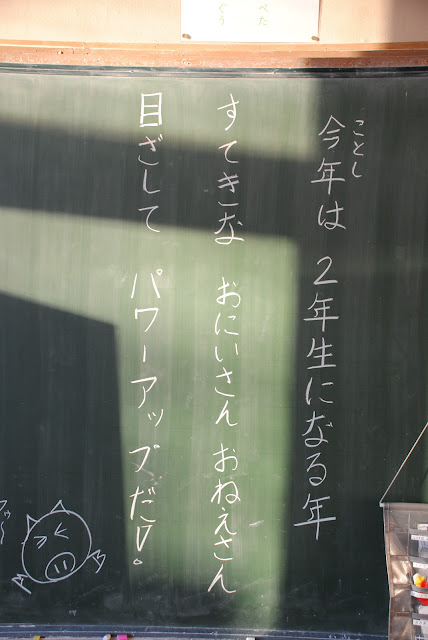 ことし
今年は 2年生になる年
すてきな おにいさん おねえさん
目ざして パワーアップだ!。